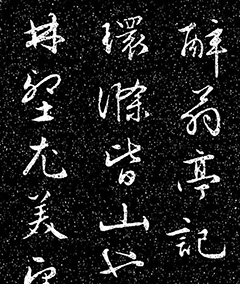 醉翁亭記
環滁皆山也
林壑尤美